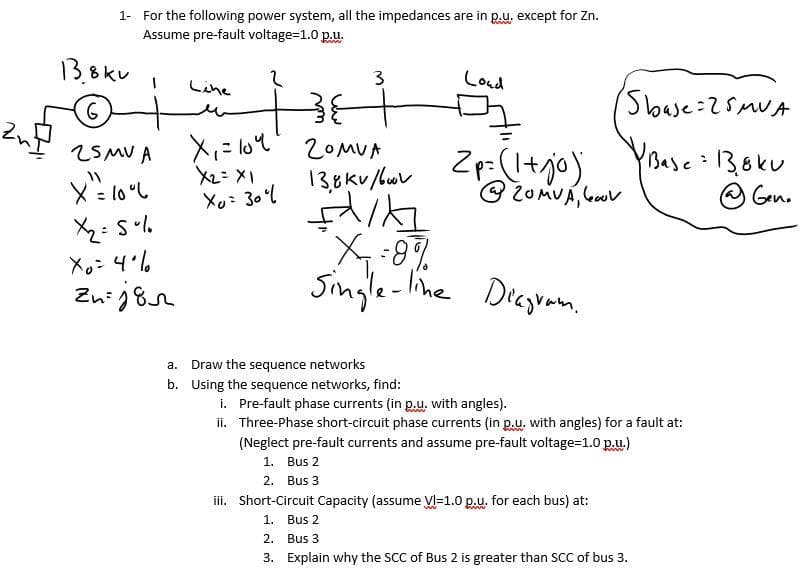 1- For the following power system, all the impedances are in p.u. except for Zn.
Assume pre-fault voltage=1.0 p.u.
13.8kv 1 Line 2 3 Load
G
Zn
Sbase=25MVA
VBase = 13.8kv
@ Gen.
25MVA
X"=10%
X2=5%
X0=4%
Zn=j8Ω
X1=10%
X2=X1
X0=30%
20MVA
13.8KV/600V
XT=8%
Zp=(1+j0)
@ 20MVA, 600V
Single-line Diagram.
a. Draw the sequence networks
b. Using the sequence networks, find:
i. Pre-fault phase currents (in p.u. with angles).
ii. Three-Phase short-circuit phase currents (in p.u. with angles) for a fault at:
(Neglect pre-fault currents and assume pre-fault voltage=1.0 p.u.)
1. Bus 2
2. Bus 3
iii. Short-Circuit Capacity (assume Vl=1.0 p.u. for each bus) at:
1. Bus 2
2. Bus 3
3. Explain why the SCC of Bus 2 is greater than SCC of bus 3.